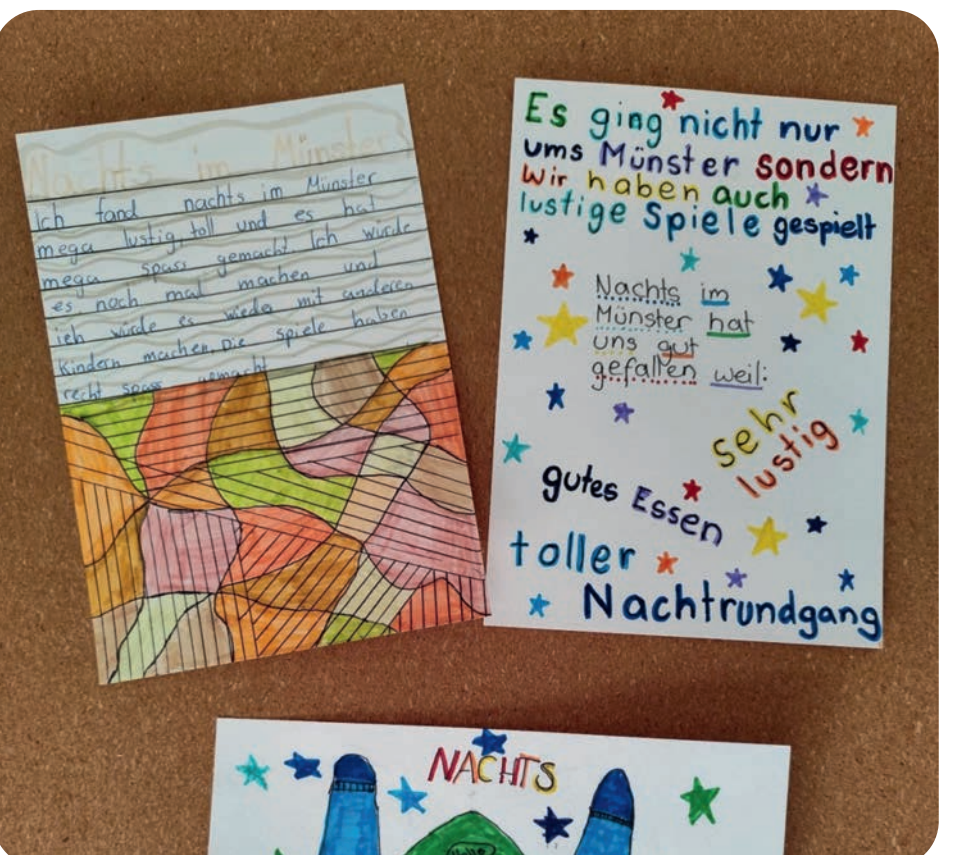 Nachts im Münster
Ich fand nachts im Münster
mega lustig, toll und es hat
mega spass gemacht. Ich würde
es noch mal machen und
ich würde es wieder mit anderen
Kindern machen. Die spiele haben
recht spass gemacht
Es ging nicht nur
ums Münster sondern
Wir haben auch
lustige Spiele gespielt
Nachts im
Münster hat
uns gut
gefallen weil:
sehr
lustig
gutes Essen
toller
Nachtrundgang
NACHTS